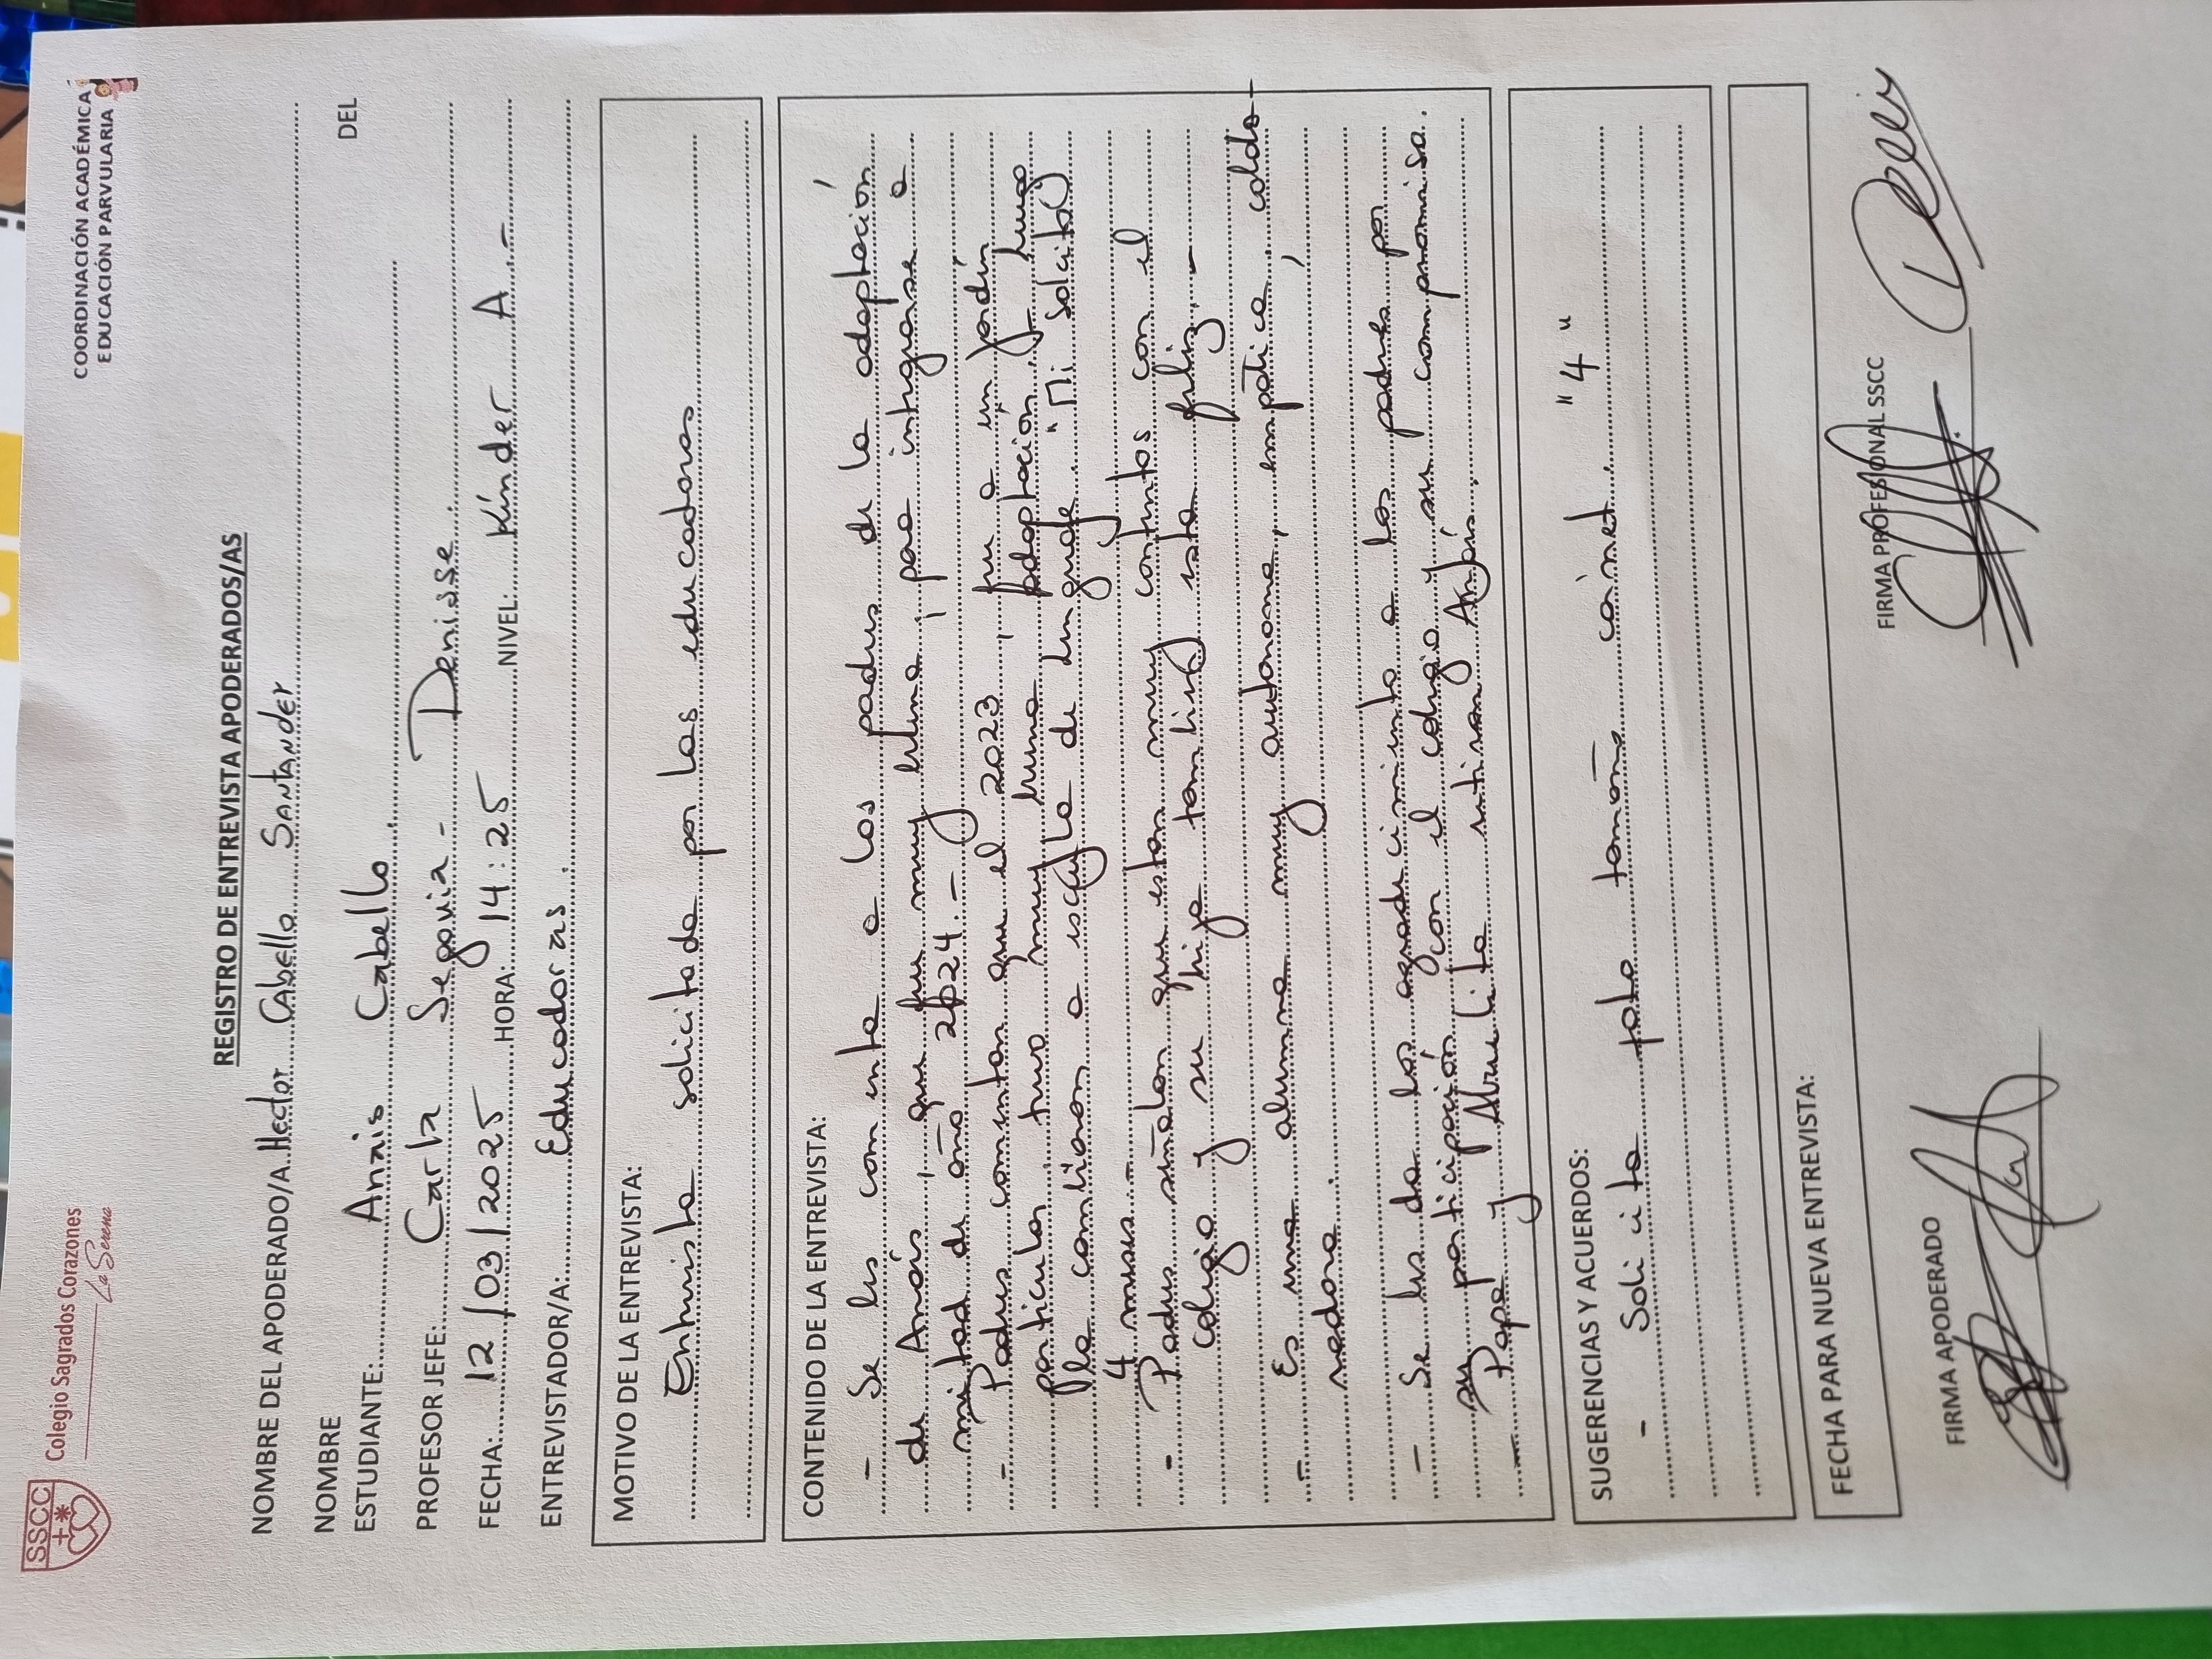 SSCC
Colegio Sagrados Corazones
La Serena
COORDINACIÓN ACADÉMICA
EDUCACIÓN PARVULARIA
REGISTRO DE ENTREVISTA APODERADOS/AS
NOMBRE DEL APODERADO/A Hector Cabello Santander
NOMBRE DEL
ESTUDIANTE: Anais Cabello
PROFESOR JEFE: Carla Segovia - Denisse.
FECHA: 12/03/2025 HORA: 14:25 NIVEL: Kínder A.-
ENTREVISTADOR/A: Educadoras.
MOTIVO DE LA ENTREVISTA:
Entrevista solicitada por las educadoras
CONTENIDO DE LA ENTREVISTA:
- Se les comenta a los padres de la adaptación
de Anaís, que fue muy buena, para integrarse a
mitad de año 2024.-
- Padres comentan que el 2023, fue a un jardín
particular tuvo muy buena adaptación, y luego
la cambiaron a escuela de lenguaje "Mi solcito"
4 meses.-
- Padres señalan que están muy contentos con el
colegio y su hija también está feliz.-
- Es una alumna muy autónoma, empática, colabo-
radora.
- Se les da los agradecimientos a los padres por
su participación con el colegio y su compromiso.
- Papá y Abuelita retiran Anaís.
SUGERENCIAS Y ACUERDOS:
- Solicita foto tamaño carnet. "4"
FECHA PARA NUEVA ENTREVISTA:
FIRMA APODERADO
FIRMA PROFESIONAL SSCC